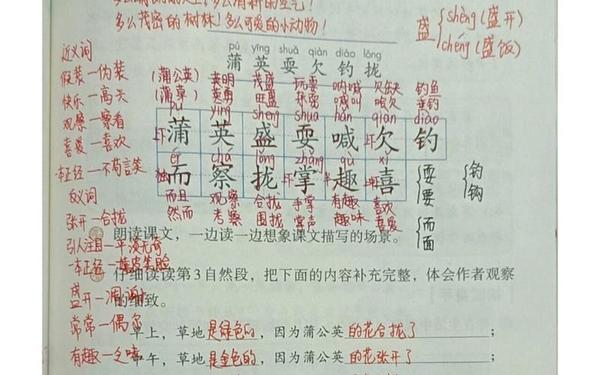 多么茂密的树林！多么可爱的小动物！
盛{shèng(盛开)
chéng(盛饭)
pú yīng shuǎ qiàn diào lǒng
蒲 英 耍 欠 钓 拢
近义词
假装—伪装
快乐—高兴
观察—察看
喜爱—喜欢
一本正经—不苟言笑
反义词
张开—合拢
引人注目—平淡无奇
一本正经—嬉皮笑脸
盛开—凋谢
常常—偶尔
有趣—乏味
(蒲公英) 英明 茂盛 玩耍 呐喊 欠缺 钓鱼
(蒲草) 英勇 旺盛 喊叫 垂钓
pú yīng shèng shuǎ hǎn qiàn diào
蒲 英 盛 耍 喊 欠 钓
ér chá lǒng zhǎng qù xǐ
而 察 拢 掌 趣 喜
而且 观察 合拢 手掌 有趣 喜欢
然而 考察 围拢 掌声 趣味 喜爱
{耍
要
{钓
钩
{而
面
朗读课文，一边读一边想象课文描写的场景。
仔细读读第3自然段，把下面的内容补充完整，体会作者观察
的细致。
早上，草地是绿色的，因为蒲公英的花合拢了；
中午，草地是金色的，因为蒲公英的花张开了；